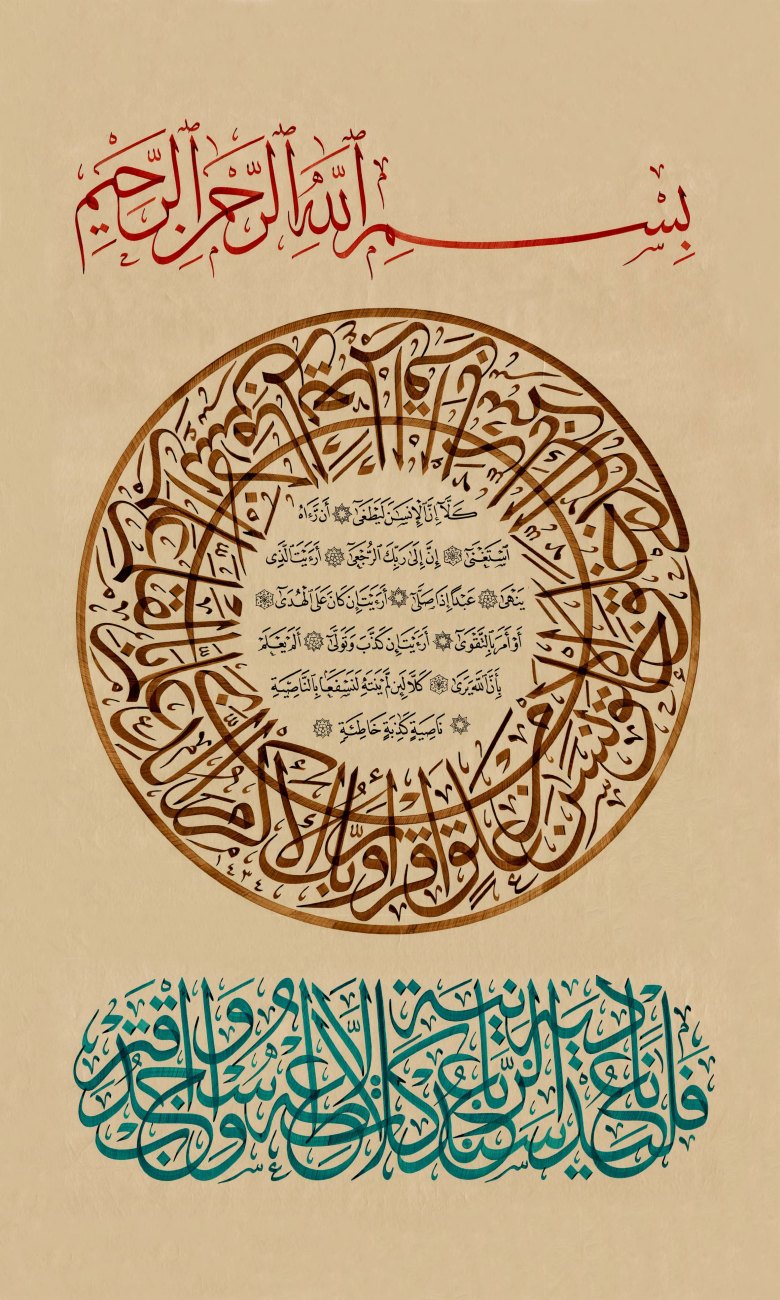 بِسْمِ ٱللَّهِ ٱلرَّحْمَٰنِ ٱلرَّحِيمِ
ٱقْرَأْ بِٱسْمِ رَبِّكَ ٱلَّذِى خَلَقَ خَلَقَ ٱلْإِنسَٰنَ مِنْ عَلَقٍ ٱقْرَأْ وَرَبُّكَ ٱلْأَكْرَمُ ٱلَّذِى عَلَّمَ بِٱلْقَلَمِ عَلَّمَ ٱلْإِنسَٰنَ مَا لَمْ يَعْلَمْ
١٤٣٤
كَلَّآ إِنَّ ٱلْإِنسَٰنَ لَيَطْغَىٰٓ ۞ أَن رَّءَاهُ
ٱسْتَغْنَىٰٓ ۞ إِنَّ إِلَىٰ رَبِّكَ ٱلرُّجْعَىٰٓ ۞ أَرَءَيْتَ ٱلَّذِى
يَنْهَىٰ ۞ عَبْدًا إِذَا صَلَّىٰٓ ۞ أَرَءَيْتَ إِن كَانَ عَلَى ٱلْهُدَىٰٓ ۞
أَوْ أَمَرَ بِٱلتَّقْوَىٰٓ ۞ أَرَءَيْتَ إِن كَذَّبَ وَتَوَلَّىٰٓ ۞ أَلَمْ يَعْلَم
بِأَنَّ ٱللَّهَ يَرَىٰ ۞ كَلَّا لَئِن لَّمْ يَنتَهِ لَنَسْفَعًۢا بِٱلنَّاصِيَةِ
۞ نَاصِيَةٍ كَٰذِبَةٍ خَاطِئَةٍ ۞
فَلْيَدْعُ نَادِيَهُۥ سَنَدْعُ ٱلزَّبَانِيَةَ كَلَّا لَا تُطِعْهُ وَٱسْجُدْ وَٱقْتَرِب